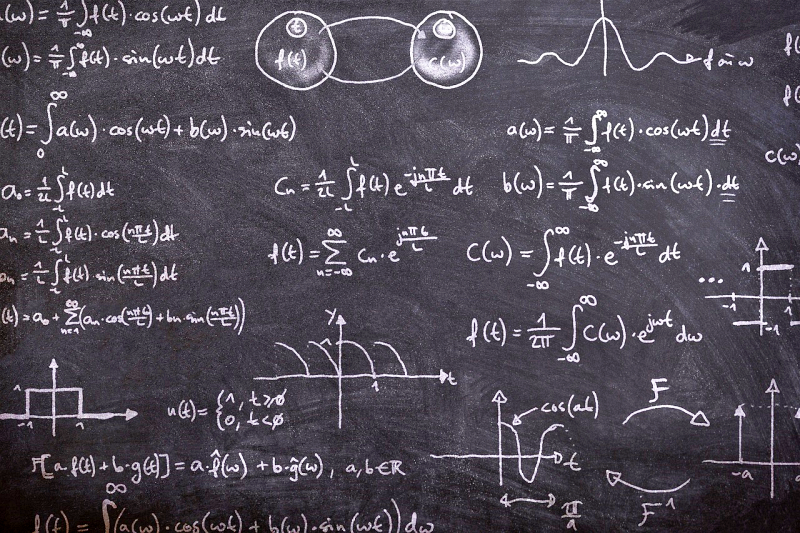 (ω) = 1/π ∫ f(t)·cos(ωt) dt
(ω) = 1/π ∫_{-∞}^{∞} f(t)·sin(ωt) dt
t f(t) c(ω)
f ω
f(
f(
(t) = ∫_0^∞ a(ω)·cos(ωt) + b(ω)·sin(ωt)
a(ω) = 1/π ∫_{-∞}^{∞} f(t)·cos(ωt) dt
c(ω)
a₀ = 1/2L ∫_{-L}^{L} f(t) dt
Cn = 1/2L ∫_{-L}^{L} f(t) e^{-jnπt/L} dt
b(ω) = 1/π ∫_{-∞}^{∞} f(t)·sin(ωt)·dt
an = 1/L ∫_{-L}^{L} f(t)·cos(nπt/L) dt
f(t) = ∑_{n=-∞}^{∞} Cn·e^{jnπt/L}
C(ω) = ∫_{-∞}^{∞} f(t)·e^{-jnπt/L} dt
bn = 1/L ∫_{-L}^{L} f(t) sin(nπt/L) dt
... 1 -1 1 -1
(t) = a₀ + ∑_{n=1}^{∞} (an·cos(nπt/L) + bn·sin(nπt/L))
f(t) = 1/2π ∫_{-∞}^{∞} C(ω)·e^{jωt} dω
y
1 t
1 -1 1
u(t) = {1, t≥0
0, t<0
cos(at)
t
π/a
F
F⁻¹
-a a
F[a·f(t) + b·g(t)] = a·f̂(ω) + b·ĝ(ω), a,b∈ℝ
f(t) = ∫^∞ (a(ω)·cos(ωt) + b(ω)·sin(ωt)) dω